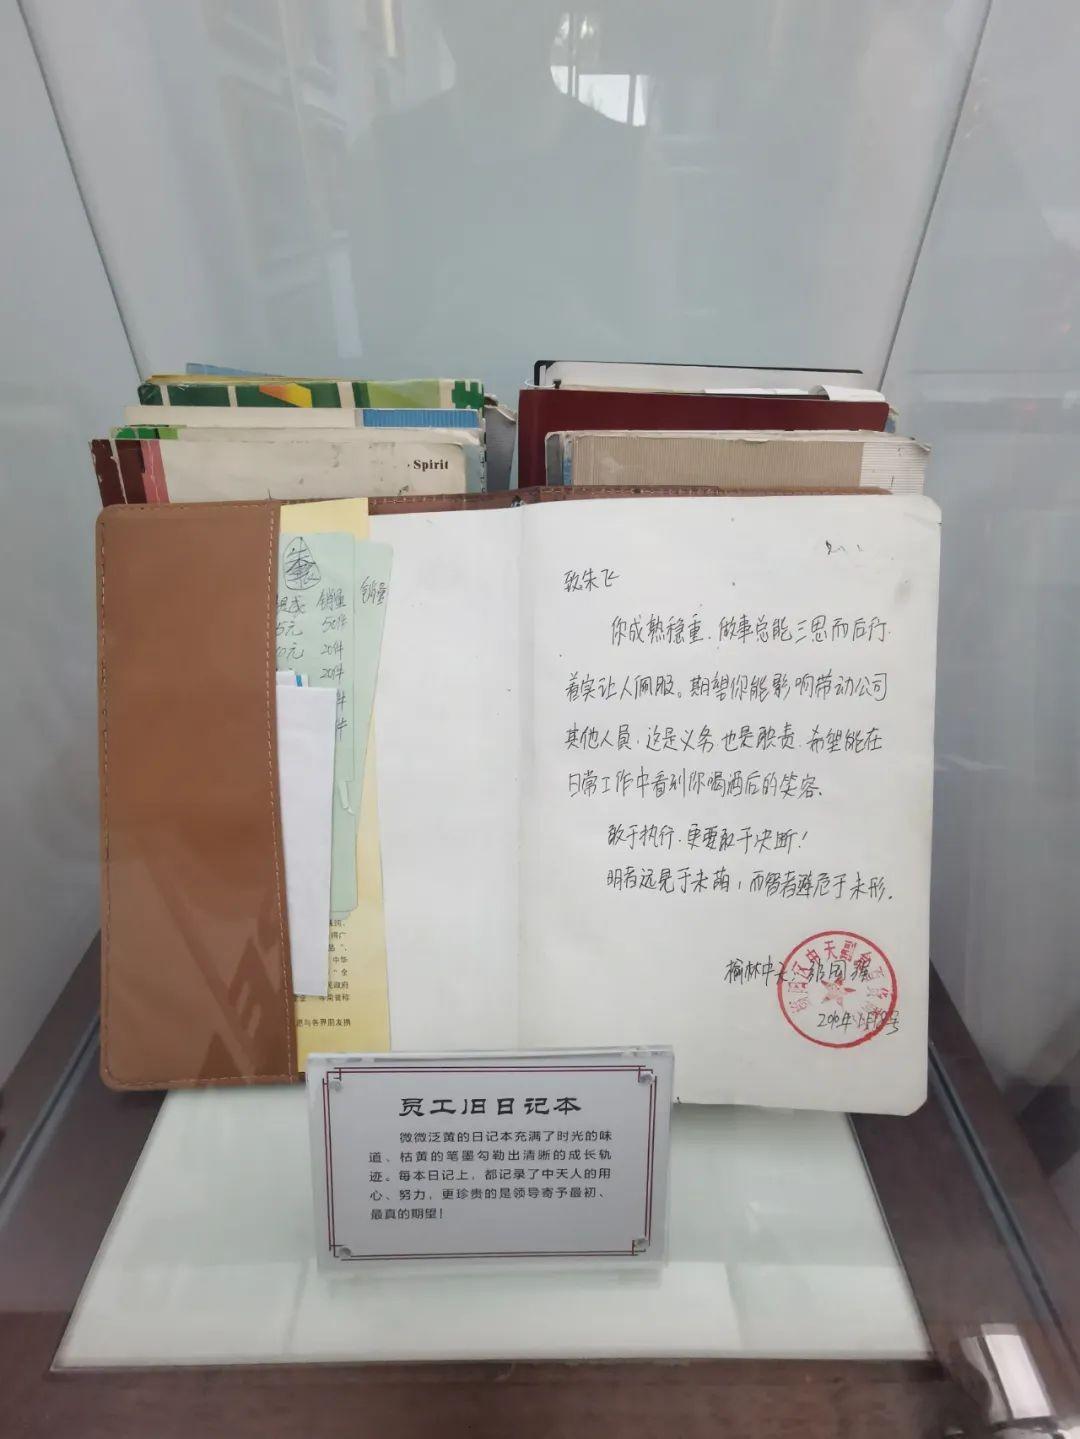 Spirit
销量
销量
5元
50件
0元
20件
20件
件
件
致朱飞
你成熟稳重、做事总能三思而后行、
着实让人佩服。期望你能影响带动公司
其他人员、这是义务、也是职责、希望能在
日常工作中看到你喝酒后的笑容、
敢于执行、更要敢于决断！
明者远见于未萌，而智者避危于未形。
榆林中天
中华
"全
政府
荣誉称
愿与各界朋友携
员工旧日记本
微微泛黄的日记本充满了时光的味
道、枯黄的笔墨勾勒出清晰的成长轨
迹。每本日记上，都记录了中天人的用
心、努力，更珍贵的是领导寄予最初、
最真的期望！